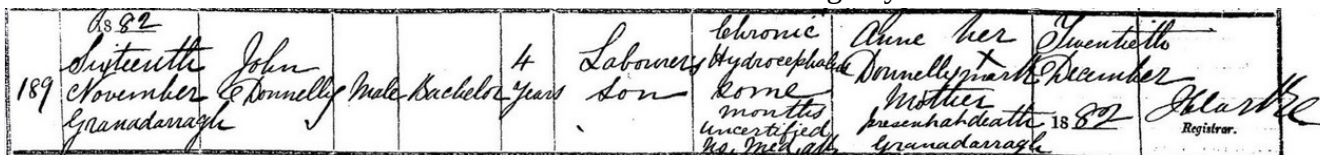 189
1882
Sixteenth
November
Granadarragh
John
Donnelly
Male
Bachelor
4
Years
Labourers
son
Chronic
Hydrocephalus
some
months
uncertified
no. Med. att.
Anne her
Donnelly X mark
Mother
present at death
Granadarragh
Twentieth
December
1882
Registrar.